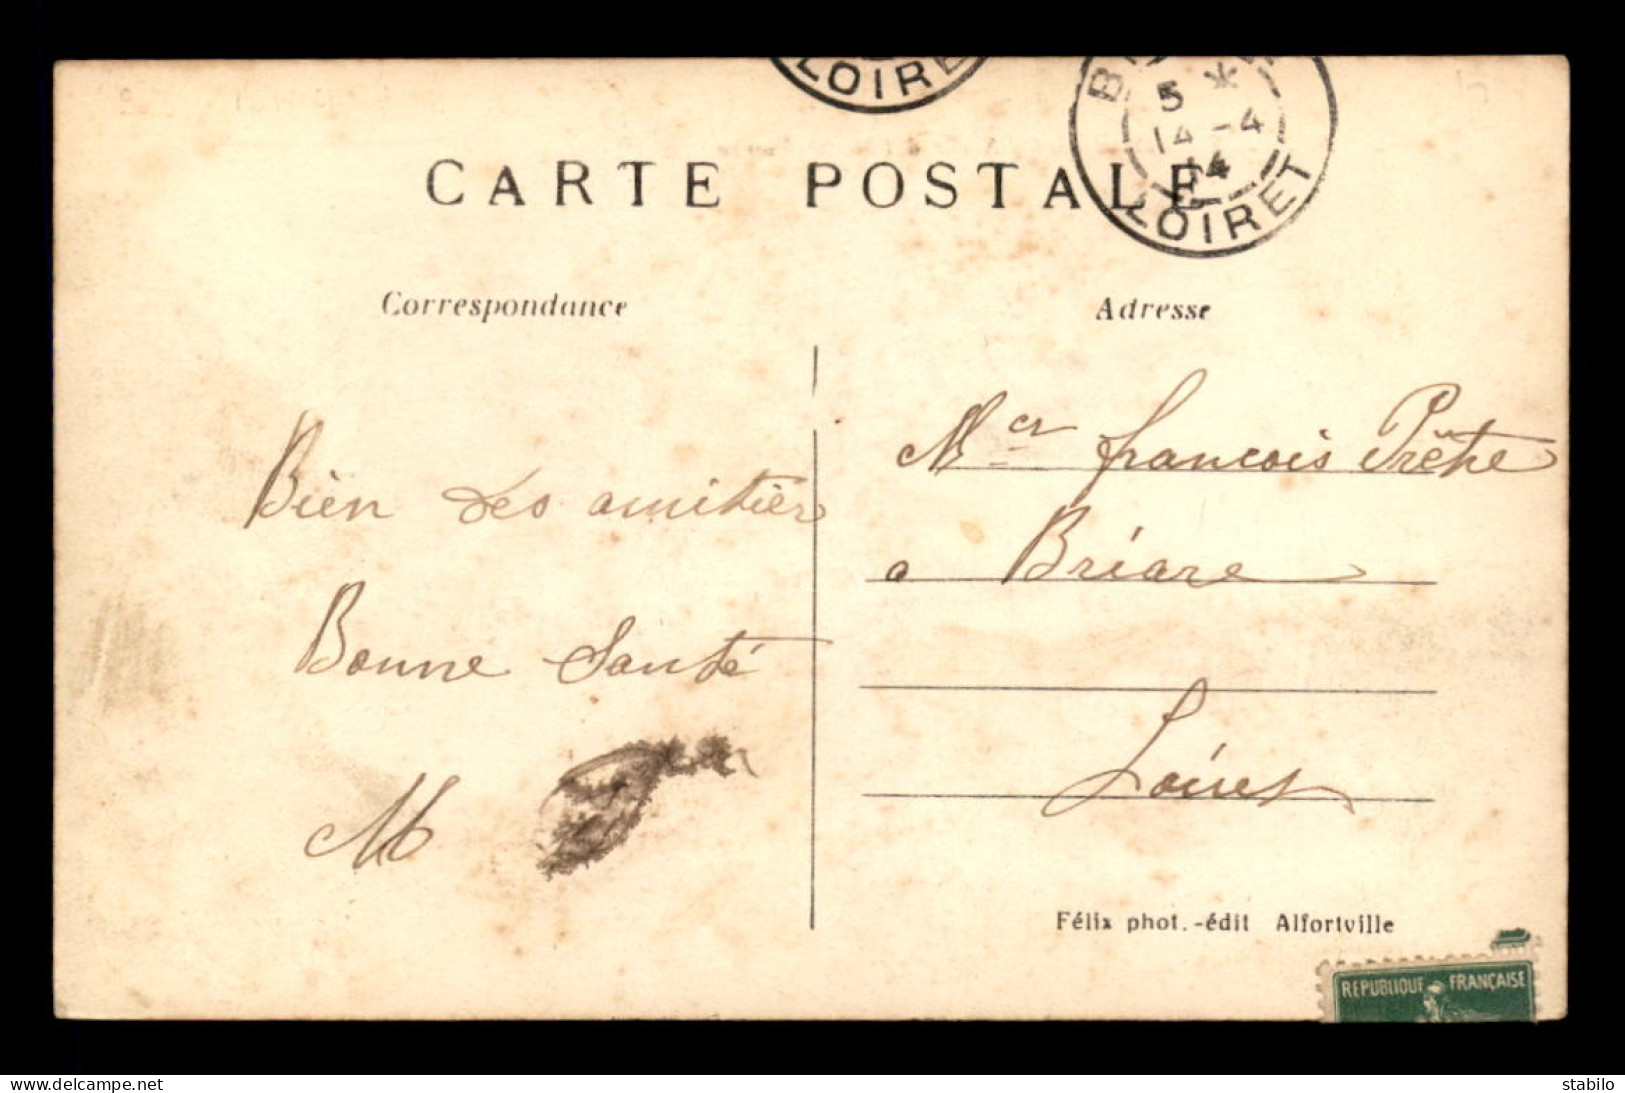 LOIRET
5 *
14 - 4
14
LOIRET
CARTE POSTALE
Correspondance
Adresse
Bien des amitiés
Bonne Santé
M
Mer francois Prêtre
a Briare
Loiret
Félix phot.-édit Alfortville
REPUBLIQUE FRANÇAISE
www.delcampe.net
stabilo